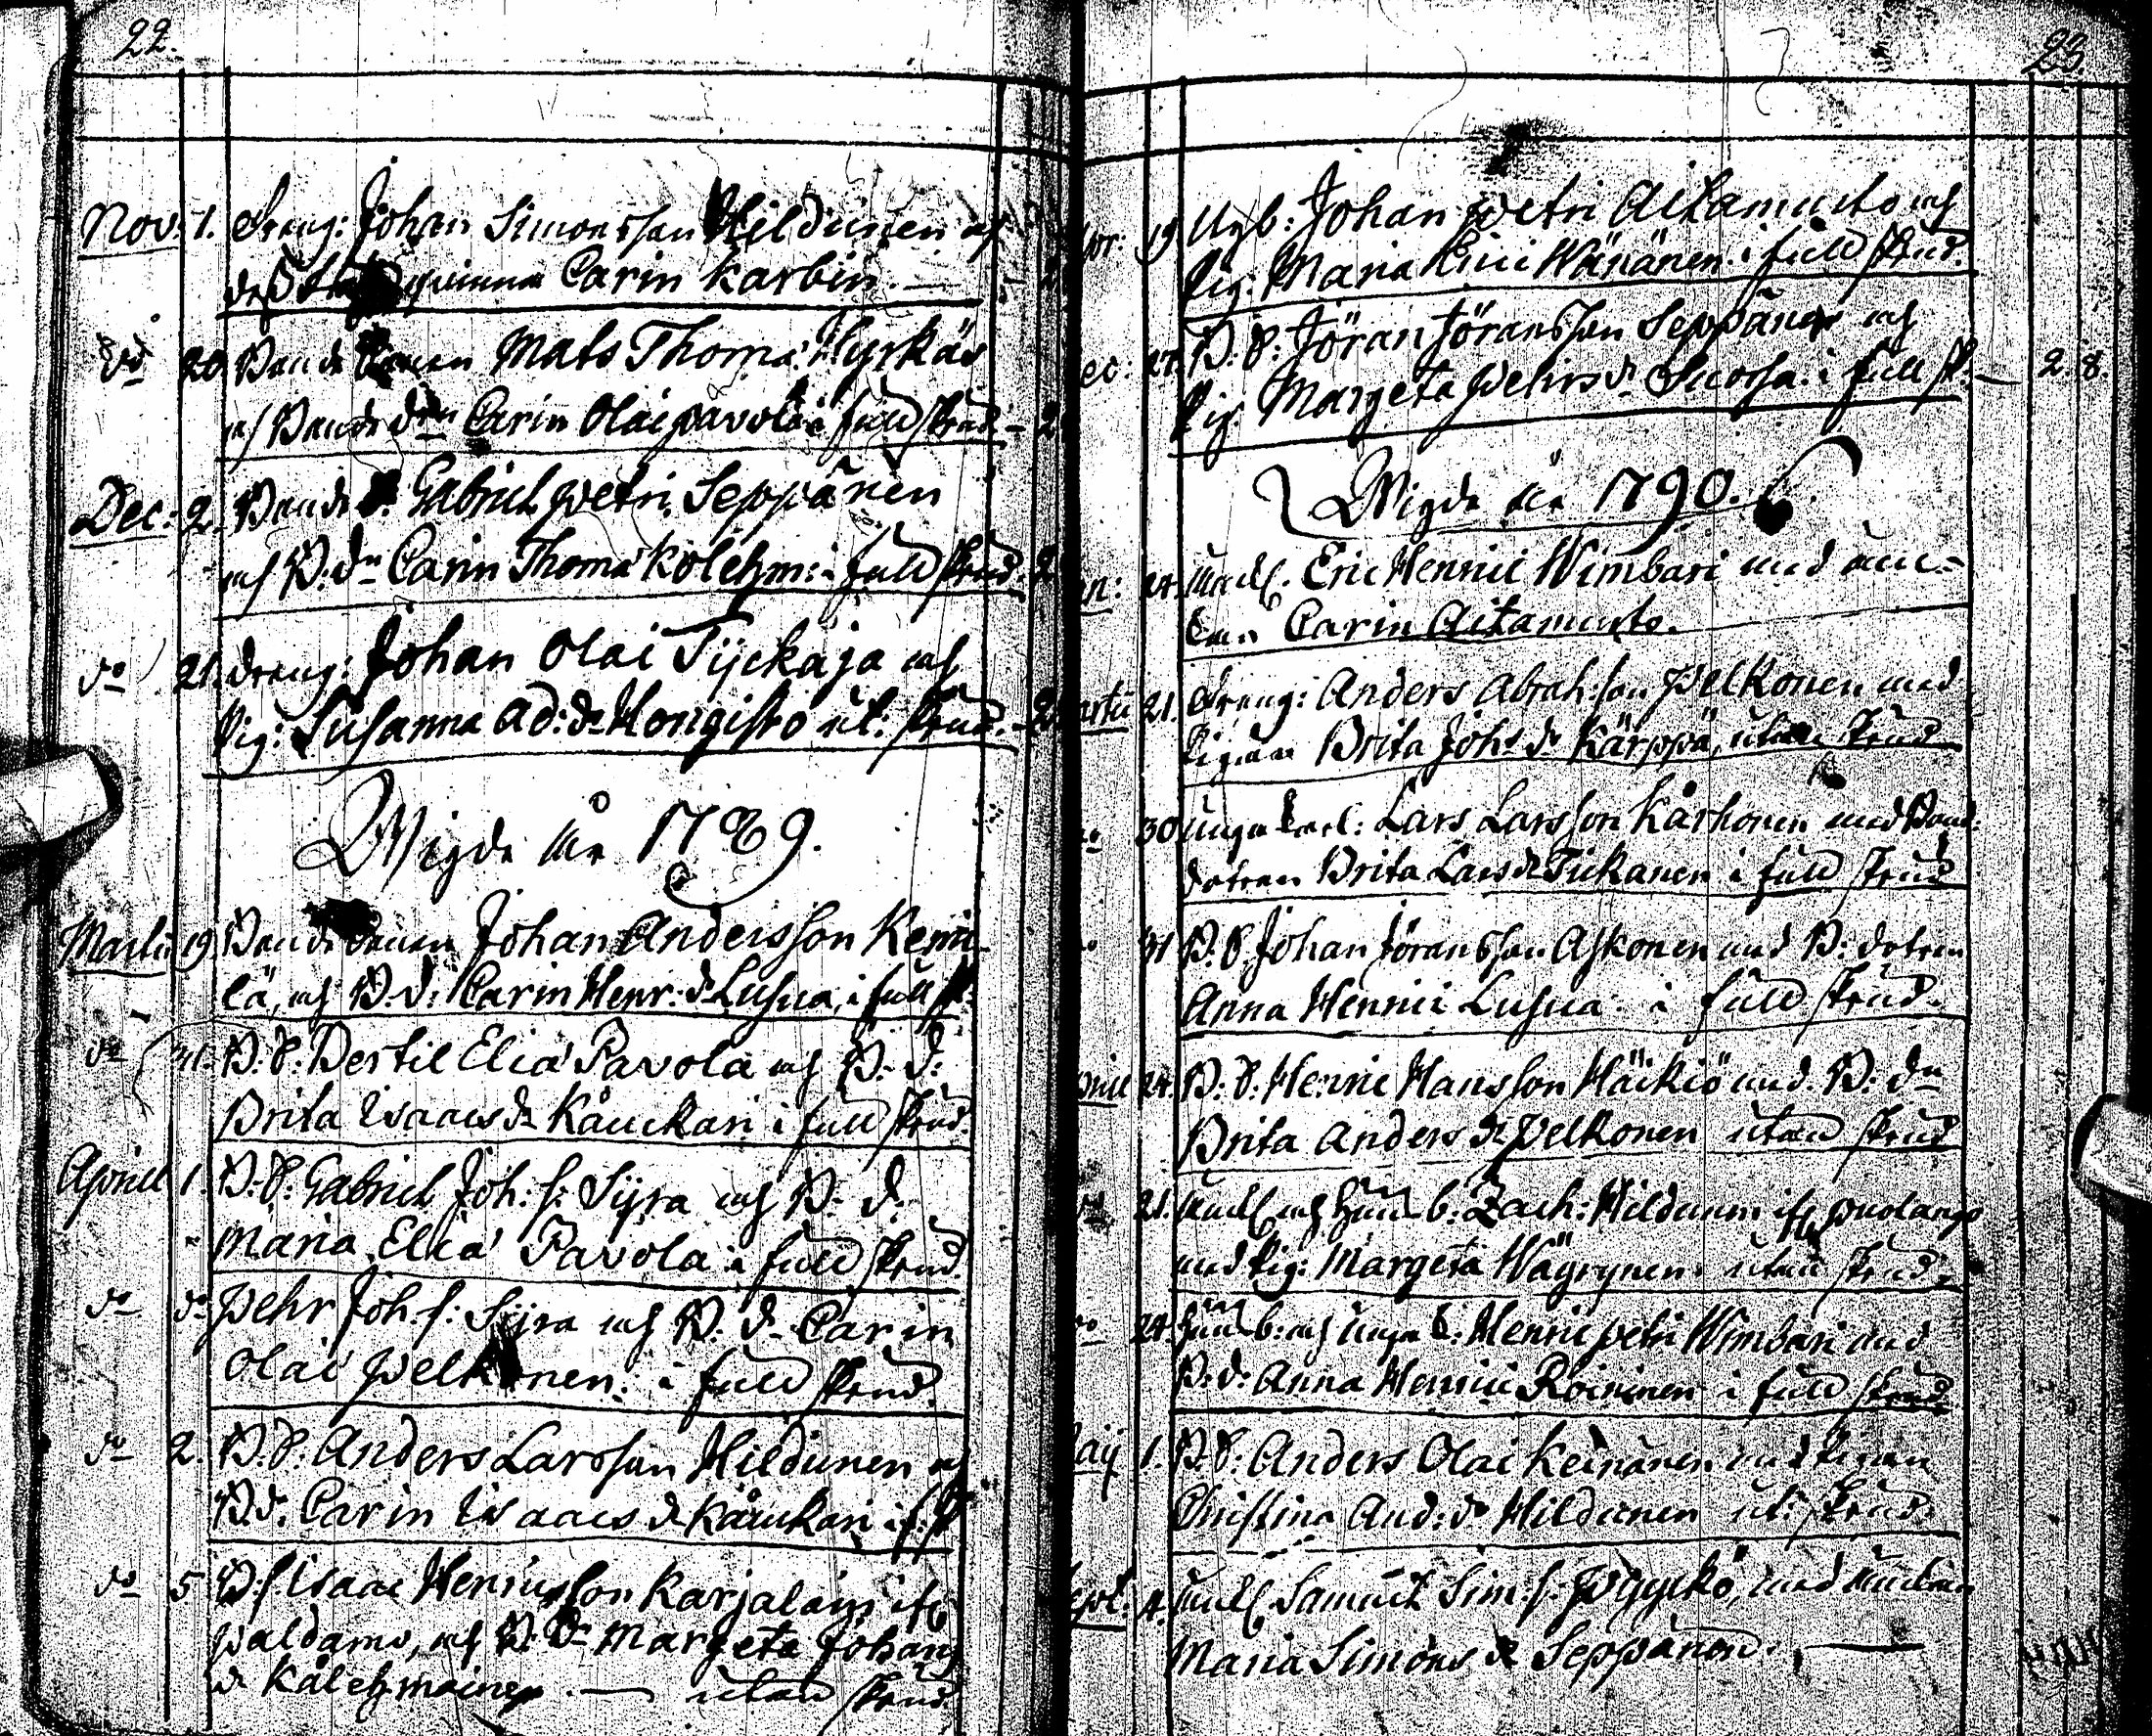 22.
Nov: 1. Dreng: Johan Simonsson Hildunen och
qvinna Carin Karbin.
do 20 Bonde Mats Thomæ Hyrkäs
och Bonde dn Carin Olai Pavola i full skrud. - 2
Dec: 2. Bonde S. Gabriel Petri Seppänen
och B: dn Carin Thomæ Kolehm: i full skrud. 2
do 21. Dreng: Johan Olai Tyckäja och
Pig: Susanna Ad: dr Hongisto ut: skrud. - 2
Wigde År 1789.
Martii 19. Bonde Sonen Johan Andersson Kemi-
lä, och B. d: Carin Henr: dr Lusua, i full sk.
do 31. B: S: Bertil Eliæ Pavola och B: d:
Brita Isaacs dr Kåuckari i full skrud.
April 1. B: S: Gabriel Joh: s: Syra och B: d.
Maria Eliæ Pavola i full skrud.
do do Pehr Joh: s: Syra och B: d. Carin
Olai Pelkonen: i full skrud.
do 2. B: S: Anders Larsson Hildunen och
B. d. Carin Isaacs dr Kåuckari i f: sk
do 5 B: s. Isaac Henricsson Karjalain ifr
Paldamo, och B. dr Margeta Johans
dr Kålehmainen. — utan skrud
23.
19. Ugb: Johan Petri Aitamurto och
Pig: Maria Erici Wänänen i full skrud.
ec: 27. B: S: Jöran Jöransson Seppänen och
Pig. Margeta Pehrs dr Suorsa: i full sk. — 2. 8.
Wigde År 1790.
n: 24. Enkl. Eric Henrici Wimbari med en-
kan Carin Aitamurto.
artii 21. Dreng: Anders Abrah: son Pelkonen med
Pigan Brita Johs dr Kärppä, utan skrud
do 30 unga karl: Lars Larsson Kårhonen med Bond:
dotren Brita Lars dr Tickanen i full skrud
do 31 B. S. Johan Jöransson Askonen med B: dotren
Anna Henrici Lusua. i full skrud.
pril 24. B: S: Henric Hansson Häikiö med B: dn
Brita Anders dr Pelkonen utan skrud
do 21. Enkl och b: Zach: Hildunen ifr Puolango
med Pig: Margeta Wägrynen. utan skrud.
do 24. b: och unga k: Henric Petri Wimbari med
B: d: Anna Henrici Roininen i full skrud.
aij 1. B. S: Anders Olai Keinänen med Pigan
Christina And: dr Hildunen ut: skrud.
ept: 4. Enkl Samuel Sim: s: Pyyckö, med Enkan
Maria Simons dr Seppänen. —